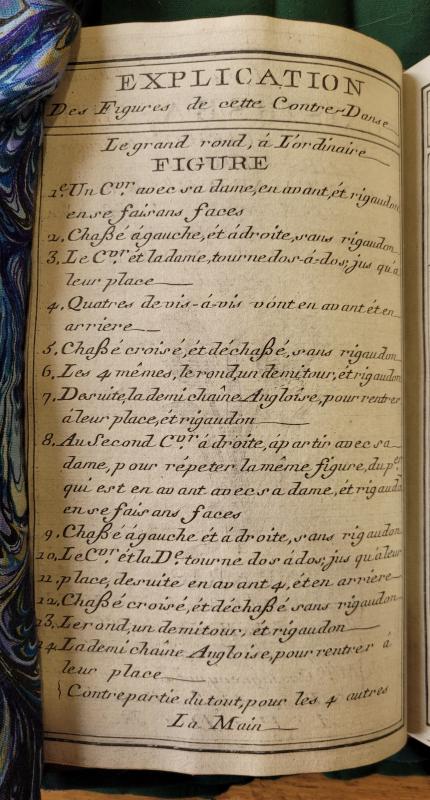 EXPLICATION
Des Figures de cette Contre-Danse
Le grand rond, á L'ordinaire
FIGURE
1.e Un C.vr avec sa dame, en avant, ét rigaudon
en se faisans faces
2. Chaßé ágauche, ét ádroite, sans rigaudon
3. Le C.vr ét la dame, tourne dos-á-dos, jus qu'a
leur place
4. Quatres de vis-á-vis vont en avant ét en
arriere
5. Chaßé croisé, ét déchaßé, sans rigaudon
6. Les 4 mêmes, le rond, un demi tour, ét rigaudon
7. Desuite, la demi chaîne Angloise, pour rentrer
á leur place, ét rigaudon
8. Au Second C.vr á droite, á partir avec sa
dame, pour répeter la même figure, du p.er
qui est en avant avec sa dame, ét rigaudon
en se faisans faces
9. Chaßé ágauche ét á droite, sans rigaudon
10. Le C.vr ét la D.e tourne dos á dos, jus qu'a leur
11. place, desuite en avant 4, ét en arriere
12. Chaßé croisé, ét déchaßé sans rigaudon
13. Le rond, un demi tour, ét rigaudon
14. La demi chaîne Angloise, pour rentrer á
leur place
Contrepartie du tout, pour les 4 autres
La Main